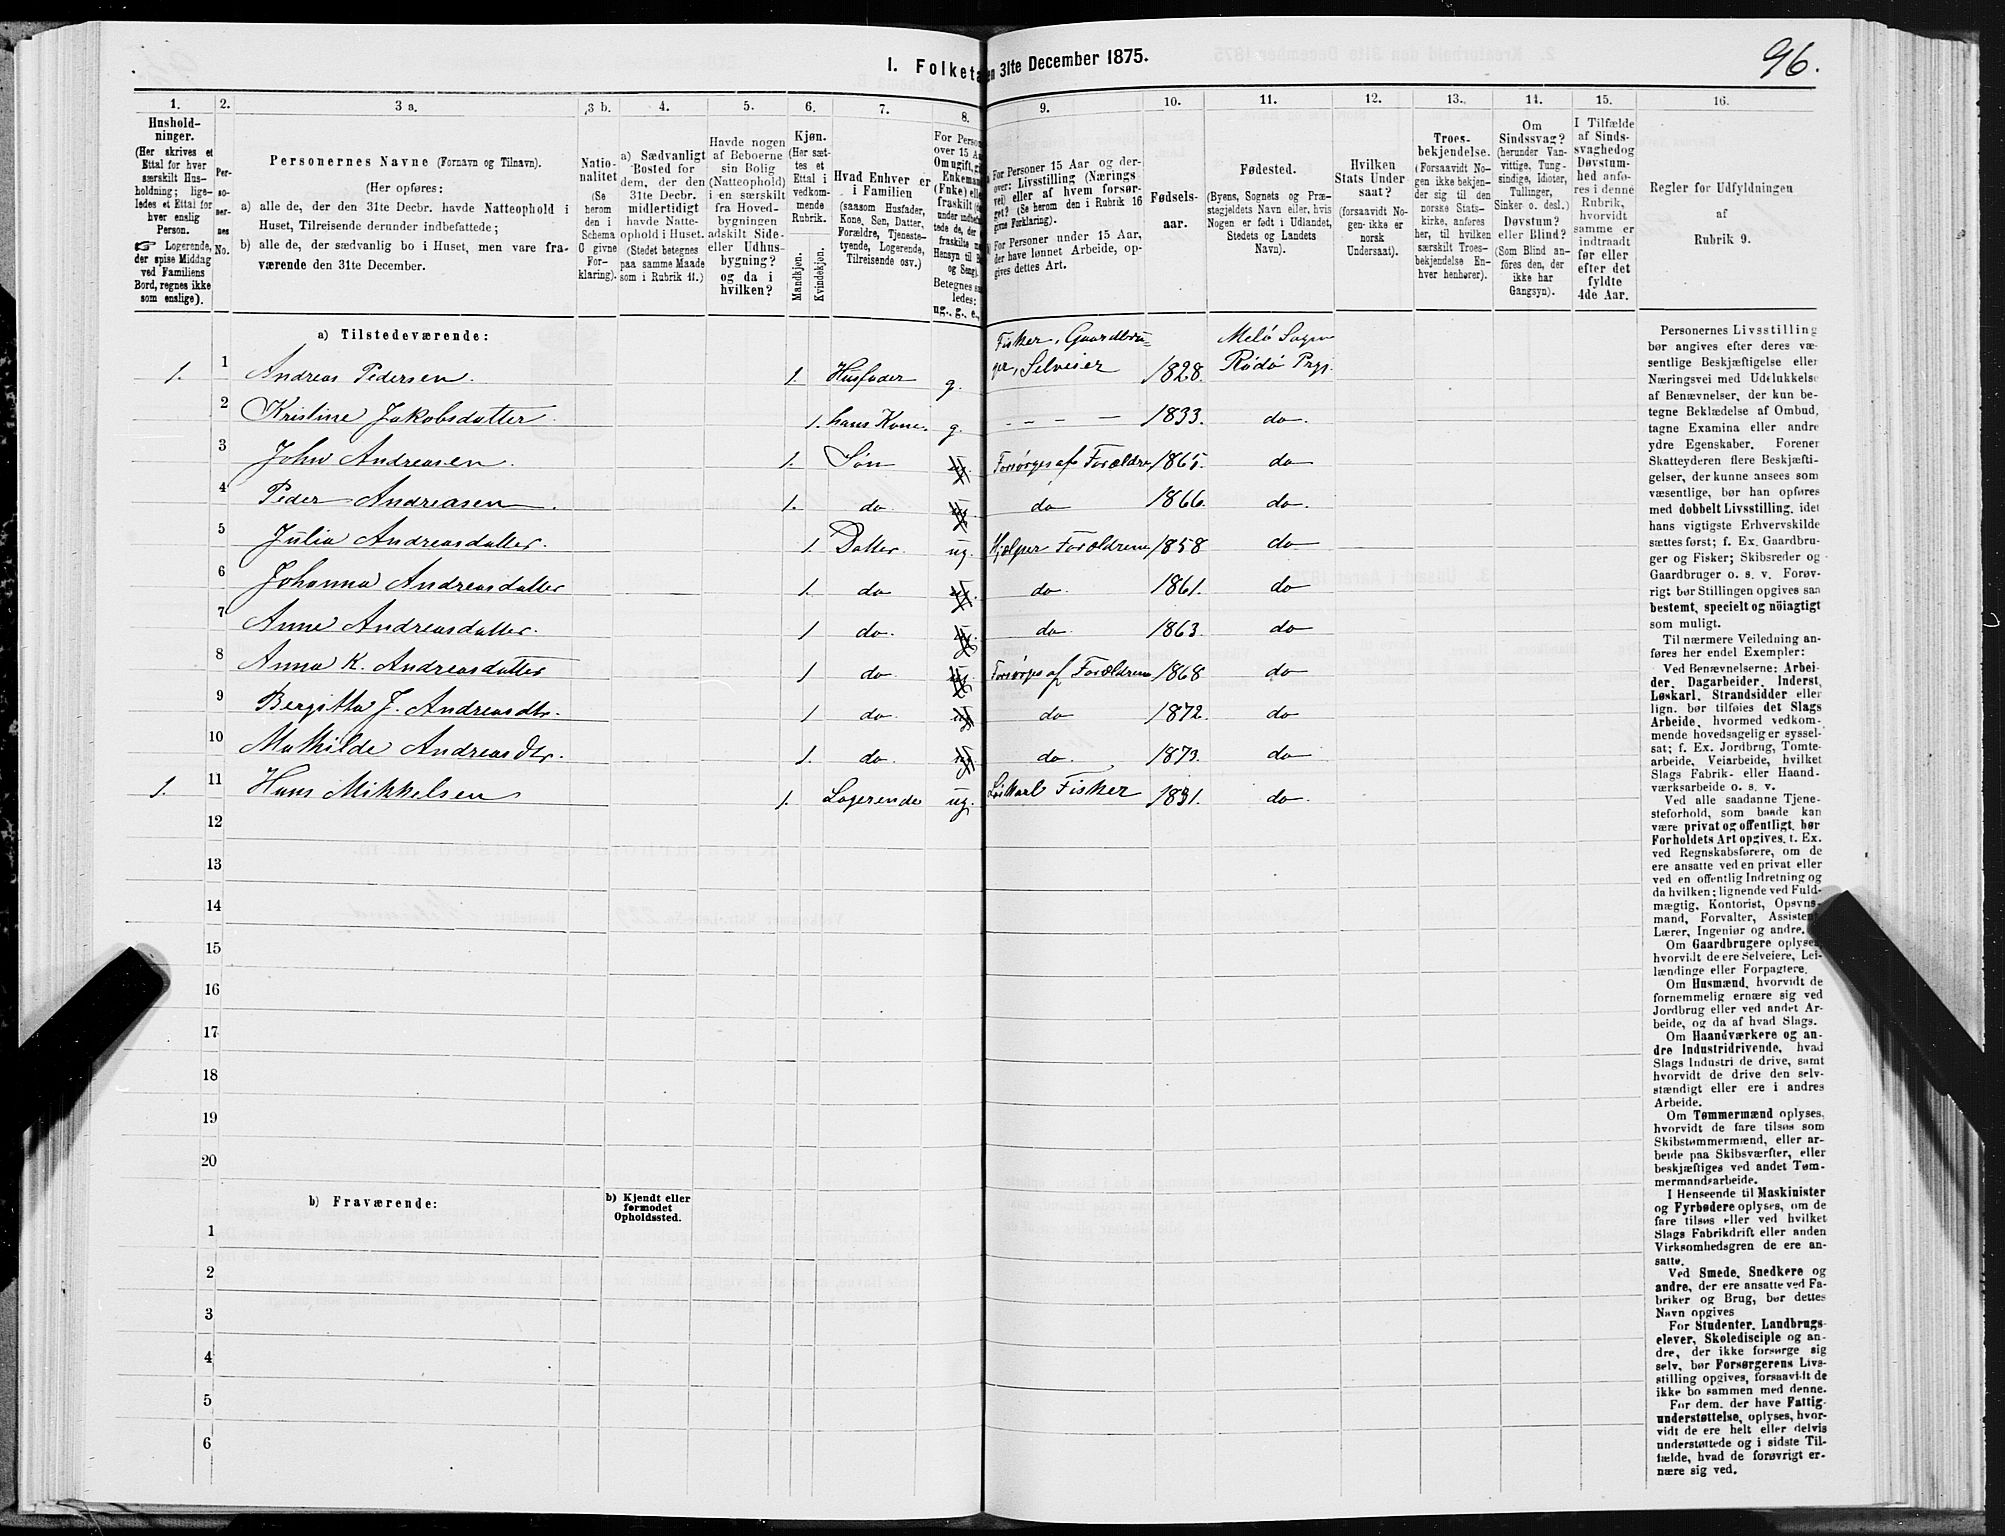 96.
I. Folketa
en 31te December 1875.
1.
2.
3 a.
3 b.
4.
5.
6.
7.
8.
9.
10.
11.
12.
13.
14.
15.
16.
Hushold-
ninger.
(Her skrives et
Ettal for hver
særskilt Hus-
holdning; lige-
ledes et Ettal for
hver enslig
Person.
☞ Logerende,
der spise Middag
ved Familiens
Bord, regnes ikke
som enslige).
Per-
so-
ner-
nes
No.
Personernes Navne (Fornavn og Tilnavn).
(Her opføres:
a) alle de, der den 31te Decbr. havde Natteophold i
Huset, Tilreisende derunder indbefattede;
b) alle de, der sædvanlig bo i Huset, men vare fra-
værende den 31te December.
Natio-
nalitet
(Se
herom
den i
Schema
C givne
For-
klaring).
a) Sædvanligt
Bosted for
dem, der den
31te Decbr.
midlertidigt
havde Natte-
ophold i Huset.
(Stedet betegnes
paa samme Maade
som i Rubrik 11.)
Havde nogen
af Beboerne
sin Bolig
(Natteophold)
i en særskilt
fra Hoved-
bygningen
adskilt Side-
eller Udhus-
bygning?
og da i
hvilken?
Kjøn.
(Her sæt-
tes et
Ettal i
vedkom-
mende
Rubrik.
Mandkjøn.
Kvindekjøn.
Hvad Enhver er
i Familien
(saasom Husfader,
Kone, Søn, Datter,
Forældre, Tjeneste-
tyende, Logerende,
Tilreisende osv.)
For Person
over 15 Aa
Om ugift, gi
Enkeman
(Enke) elle
fraskilt
under indbefa
tede de, der
fraskilte m
Hensyn til B
og Seng).
Betegnes saa
ledes:
ug., g., e.,
For Personer 15 Aar og der-
over: Livsstilling (Nærings
vei) eller af hvem forsør-
get? (Se herom den i Rubrik 16
givne Forklaring).
For Personer under 15 Aar,
der have lønnet Arbeide, op-
gives dettes Art.
Fødsels-
aar.
Fødested.
(Byens, Sognets og Præ-
stegjeldets Navn eller, hvis
Nogen er født i Udlandet,
Stedets og Landets
Navn).
Hvilken
Stats Under
saat?
(forsaavidt No-
gen ikke er
norsk
Undersaat).
Troes-
bekjendelse.
(Forsaavidt No-
gen ikke bekjen-
der sig til den
norske Stats-
kirke, anføres
her, til hvilken
særskilt Troes-
bekjendelse En-
hver henhører).
Om
Sindssvag?
(herunder Van-
vittige, Tung-
sindige, Idioter,
Tullinger,
Sinker o. desl.)
Døvstum?
eller Blind?
(Som Blind an-
føres den, der
ikke har
Gangsyn).
I Tilfælde
af Sinds-
svaghed og
Døvstum-
hed anfø-
res i denne
Rubrik,
hvorvidt
samme er
indtraadt
før eller
efter det
fyldte
4de Aar.
Regler for Udfyldningen
af
Rubrik 9.
a) Tilstedeværende:
Fisker, Gaardbru- Melø Sogn
1. 1 Andreas Pedersen. 1. Husfader g. ger, Selveier 1828. Rødø Prgj.
2 Kristine Jakobsdatter 1. hans Kone. g. - - - 1833. do.
3 John Andreasen. 1. Søn ug. Forsørges af Forældre 1865. do
4 Peder Andreasen. 1. do ug do 1866. do.
5 Julia Andreasdatter. 1. Datter ug. Hjælper Forældrene 1858 do
6 Johanna Andreasdatter 1. do ug. do. 1861. do
7 Anne Andreasdatter. 1 do. ug. do. 1863. do
8 Anna K. Andreasdatter 1 do. ug. Forsørges af Forældrene 1868 do
9 Bergitta J. Andreasdtr. 1 do. ug do 1872. do
10 Mathilde Andreasdtr. 1. do. ug do. 1873. do
1. 11 Hans Mikkelsen 1. Logerende ug. Løskarl Fisker 1831. do.
12
13
14
15
16
17
18
19
20
b) Fraværende:
b) Kjendt eller
formodet
Opholdssted.
1
2
3
4
5
6
Personernes Livsstilling
bør angives efter deres væ-
sentlige Beskjæftigelse eller
Næringsvei med Udelukkelse
af Benævnelser, der kun be-
tegne Beklædelse af Ombud,
tagne Examina eller andre
ydre Egenskaber. Forener
Skatteyderen flere Beskjæfti-
gelser, der kunne ansees som
væsentlige, bør han opføres
med dobbelt Livsstilling, idet
hans vigtigste Erhvervskilde
sættes først; f. Ex. Gaardbru-
ger og Fisker; Skibsreder og
Gaardbruger o. s. v. Forøv-
rigt bør Stillingen opgives saa
bestemt, specielt og nøiagtigt
som muligt.
Til nærmere Veiledning an-
føres her endel Exempler:
Ved Benævnelserne: Arbei-
der, Dagarbeider, Inderst,
Løskarl, Strandsidder eller
lign. bør tilføies det Slags
Arbeide, hvormed vedkom-
mende hovedsagelig er syssel-
sat; f. Ex. Jordbrug, Tomte-
arbeide, Veiarbeide, hvilket
Slags Fabrik- eller Haand-
værksarbeide o. s. v.
Ved alle saadanne Tjene-
steforhold, som baade kan
være privat og offentligt, bør
Forholdets Art opgives, t. Ex.
ved Regnskabsførere, om de
ere ansatte ved en privat eller
ved en offentlig Indretning og
da hvilken; lignende ved Fuld-
mægtig, Kontorist, Opsyns-
mand, Forvalter, Assistent,
Lærer, Ingeniør og andre.
Om Gaardbrugere oplyses,
hvorvidt de ere Selveiere, Lei-
lændinge eller Forpagtere.
Om Husmænd, hvorvidt de
fornemmelig ernære sig ved
Jordbrug eller ved andet Ar-
beide, og da af hvad Slags.
Om Haandværkere og an-
dre Industridrivende, hvad
Slags Industri de drive, samt
hvorvidt de drive den selv-
stændigt eller ere i andres
Arbeide.
Om Tømmermænd oplyses,
hvorvidt de fare tilsøs som
Skibstømmermænd, eller ar-
beide paa Skibsværfter, eller
beskjæftiges ved andet Tøm-
mermandsarbeide.
I Henseende til Maskinister
og Fyrbødere oplyses, om de
fare tilsøs eller ved hvilket
Slags Fabrikdrift eller anden
Virksomhedsgren de ere an-
satte.
Ved Smede, Snedkere og
andre, der ere ansatte ved Fa-
briker og Brug, bør dettes
Navn opgives
For Studenter, Landbrugs-
elever, Skoledisciple og an-
dre, der ikke forsørge sig
selv, bør Forsørgerens Livs-
stilling opgives, forsaavidt de
ikke bo sammen med denne.
For dem, der have Fattig-
understøttelse, oplyses, hvor-
vidt de ere helt eller delvis
understøttede og i sidste Til-
fælde, hvad de forøvrigt er-
nære sig ved.